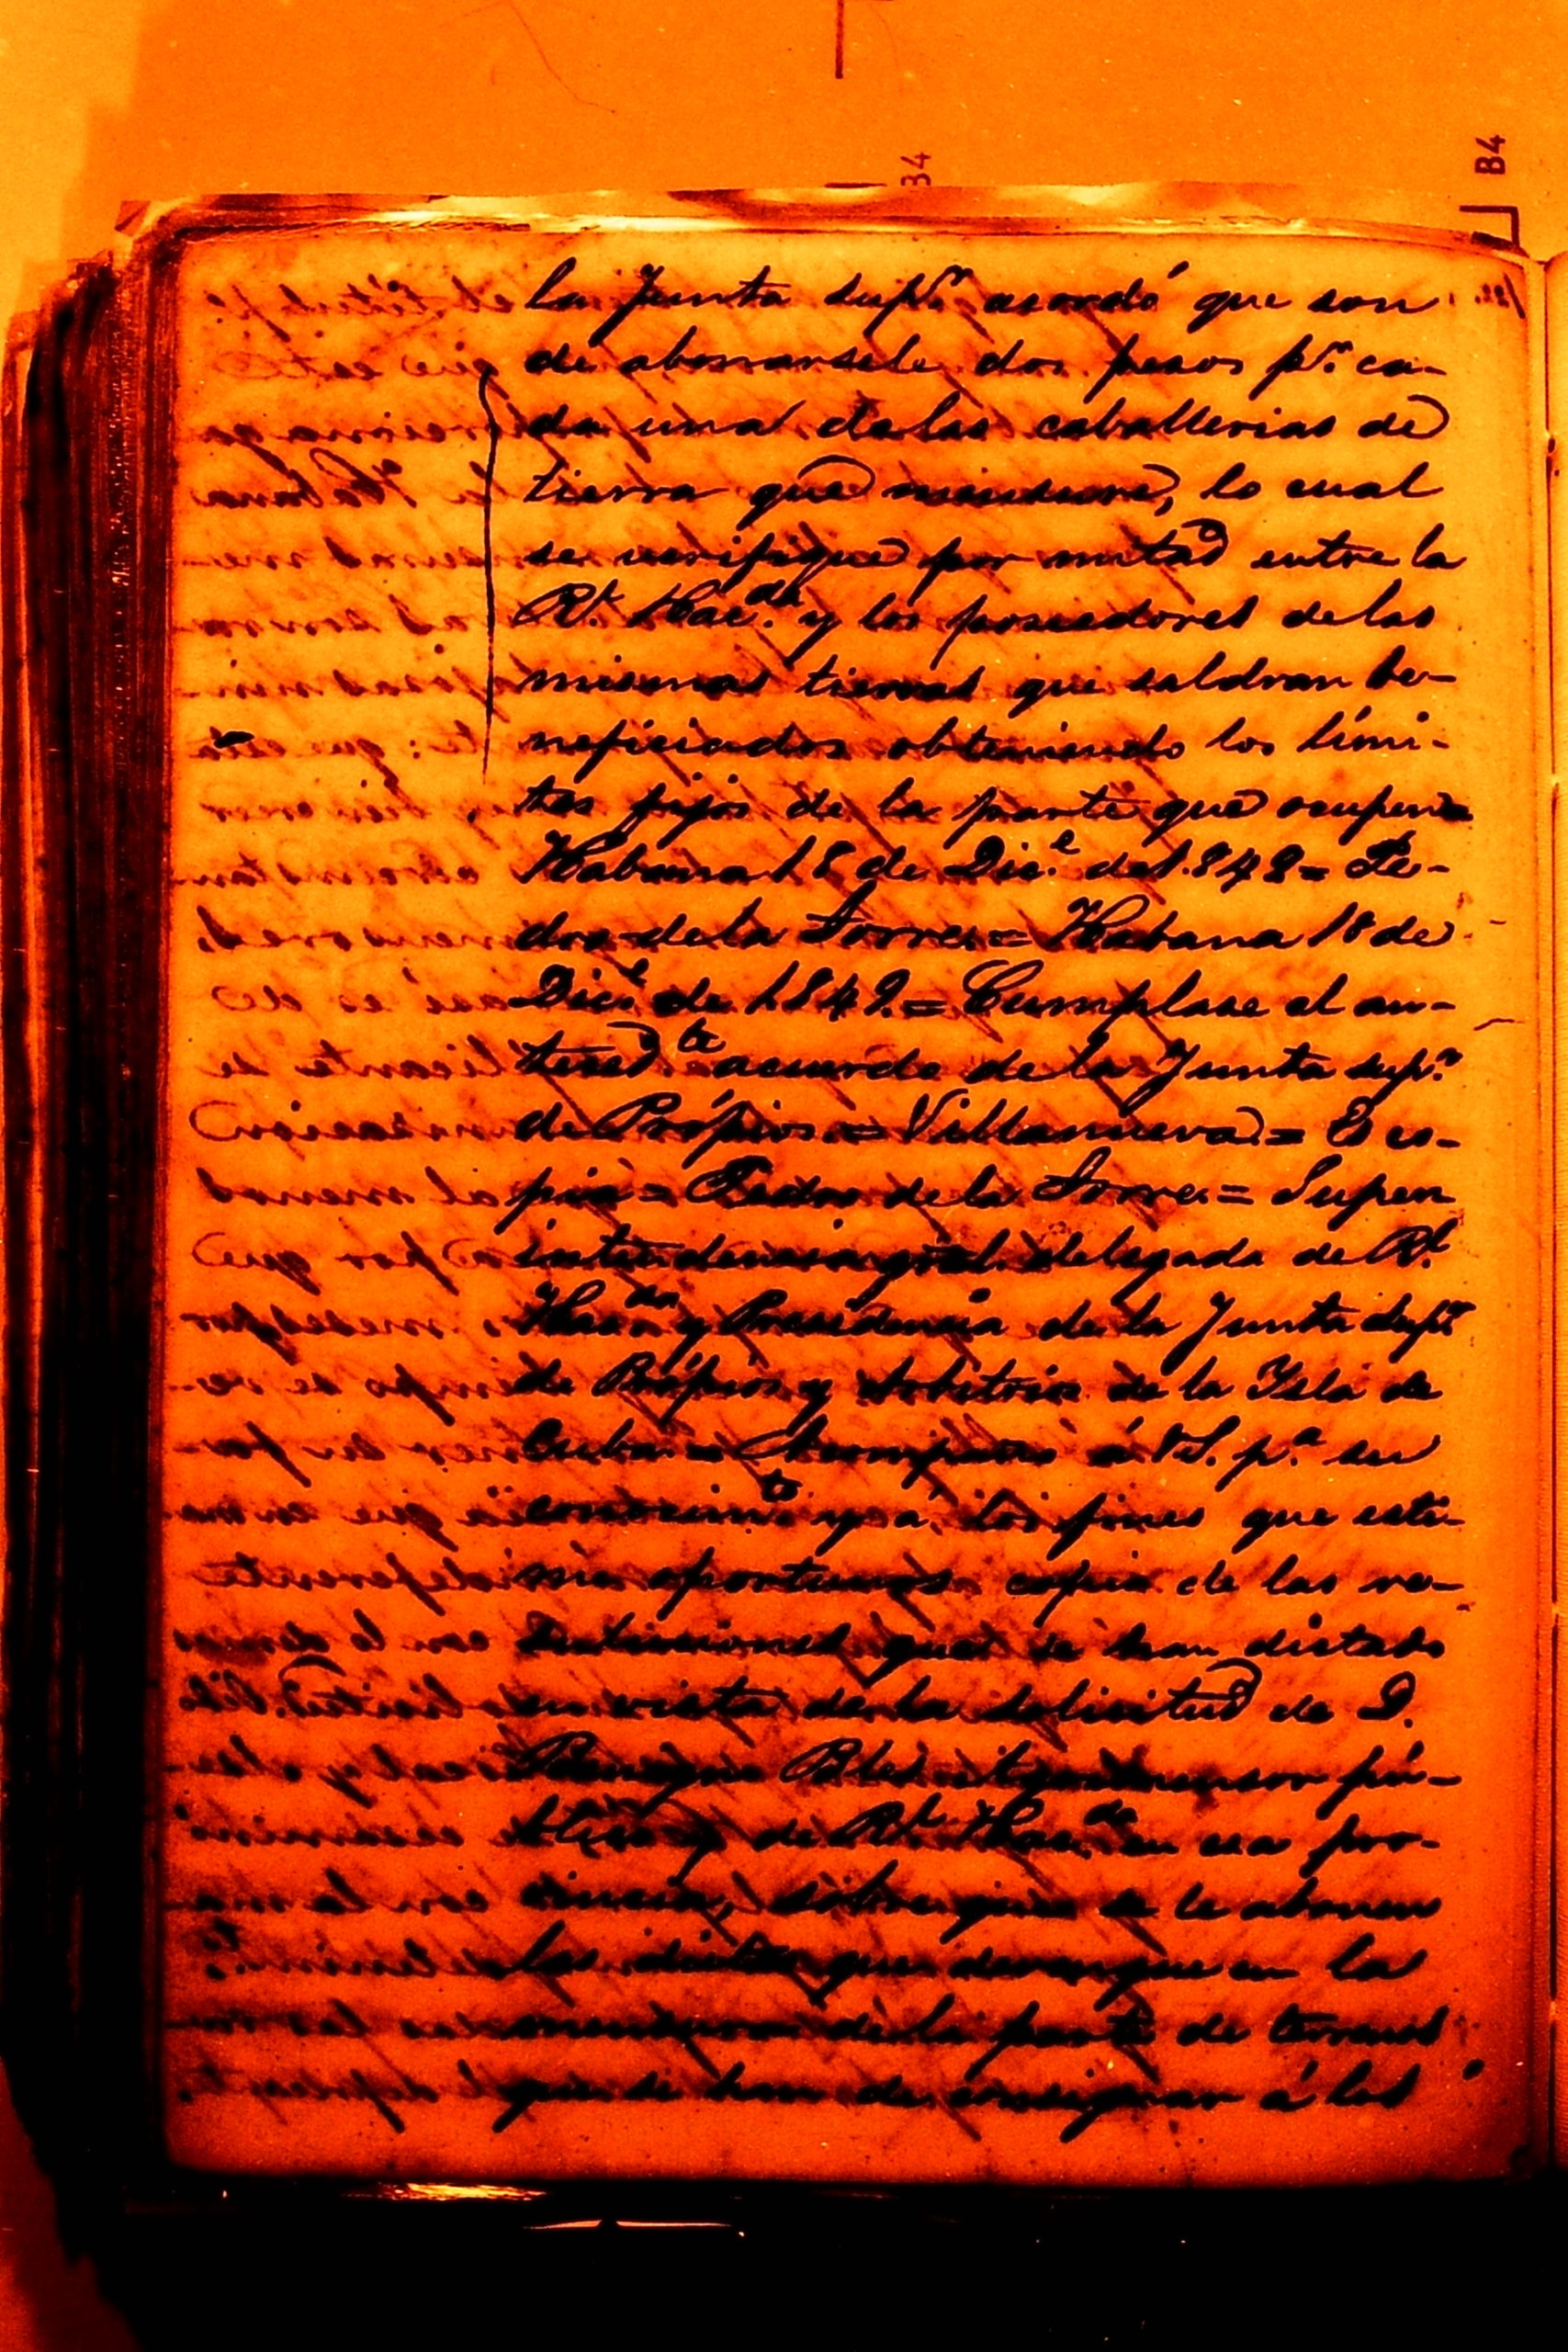 B4
B4
la Junta supr. acordó que son
de abonarsele dos pesos pr. ca-
da una de las caballerias de
tierra que mensure, lo cual
se verifique por mitad entre la
Rl. Hacda. y los poseedores de las
mismas tierras que saldran be-
neficiados obteniendo los lími-
tes fijos de la parte que ocupen=
Habana 18 de Dice. de 1.849= Pe-
dro de la Torre.= Habana 18 de
Dice. de 1849.= Cumplase el an-
teced.te acuerdo de la Junta supr.
de Própios.= Villanueva.= Es co-
pia= Pedro de la Torre.= Super
intendencia gral. delegada de Rl.
Hacda. y Presidencia de la Junta supr.
de Própios y Arbitrios de la Ysla de
Cuba.= Acompaño á V.S. pa. su
conocimto. y á los fines que esti-
me oportunos copia de las re-
soluciones que se han dictado
en vista de la solicitud de D.
Rles. Agrimensor pú-
blico y de Rl. Hacda. en esa pro-
vincia, sobre que se le abonen
las dietas que devengue en la
mensura de la parte de terrenos
que se han de consignar á los